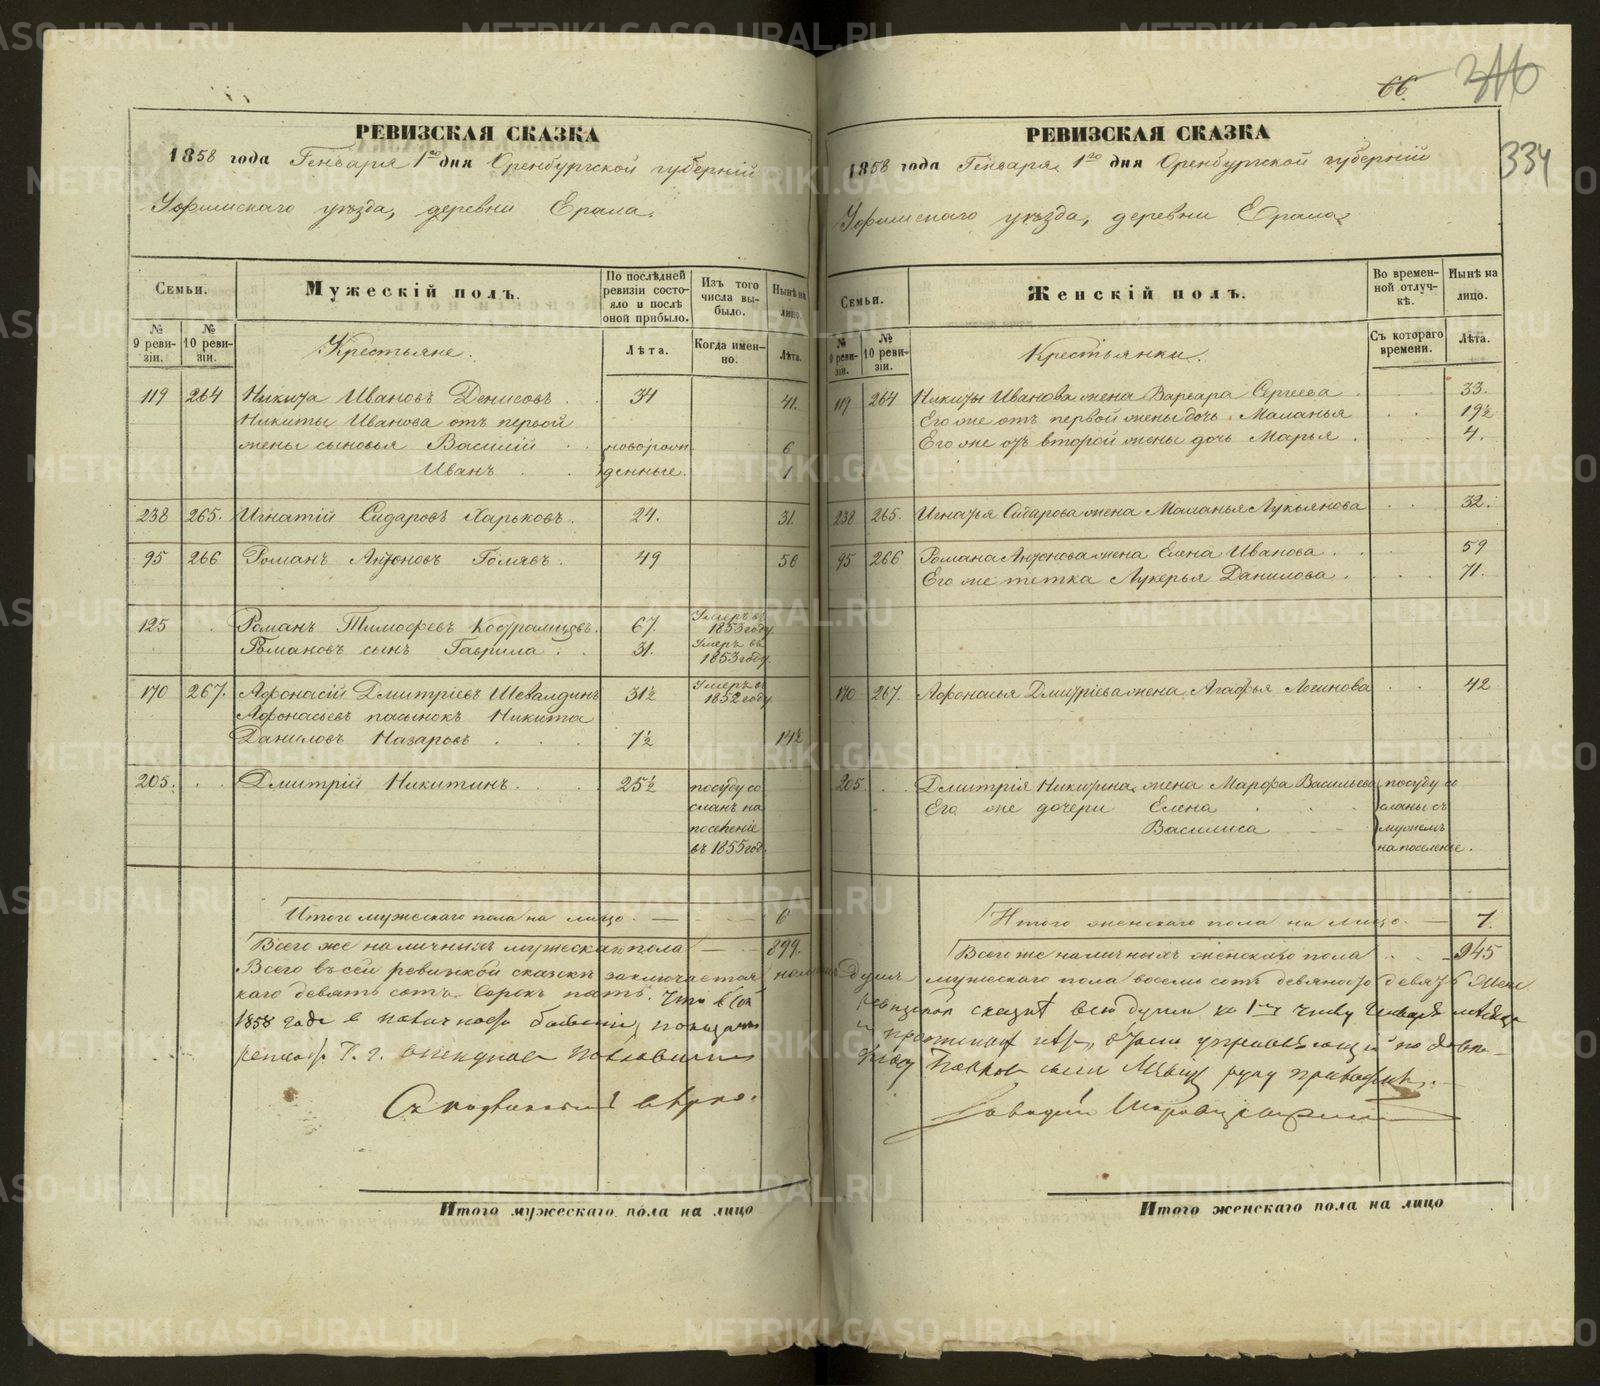 66.
316
334
РЕВИЗСКАЯ СКАЗКА
1858 года Генваря 1го дня Оренбургской губерній
Уфимскаго уезда, деревни Ерала.
Семьи.
Мужескій полъ.
По послѣдней ревизіи состояло и послѣ оной прибыло.
Изъ того числа выбыло.
Нынѣ на лицо.
№ 9 ревизіи.
№ 10 ревизіи.
Крестьяне.
Лѣта.
Когда именно.
Лѣта.
119 264 Никита Ивановъ Денисовъ . . 34 41.
Никиты Иванова отъ первой
жены сыновья Василій . . новорожденные. 6
Иванъ . . 1
238 265. Игнатій Сидаровъ Харьковъ. 24. 31.
95 266 Романъ Антоновъ Голявъ. 49 56
125 . Романъ Тимофеевъ Костромцовъ. 67. Умеръ въ 1853 году.
Романовъ сынъ Гаврила . . 31. Умеръ въ 1853 году.
170 267. Афонасій Дмитріевъ Шевалдинъ 31½ Умеръ въ 1852 году.
Афонасьевъ пасынокъ Никита
Даниловъ Назаровъ . . . 7½ 14½
205. . . Дмитрій Никитинъ. . . . 25½ посуду сосланъ на поселеніе въ 1855 год.
Итого мужескаго пола на лицо. — 6
Всего же наличныхъ мужескаго пола — 899.
РЕВИЗСКАЯ СКАЗКА
1858 года Генваря 1го дня Оренбургской губерній
Уфимскаго уезда, деревни Ерала.
Семьи.
Женскій полъ.
Во временной отлучкѣ.
Нынѣ на лицо.
№ 9 ревизіи.
№ 10 ревизіи.
Крестьянки.
Съ котораго времени.
Лѣта.
119 264 Никиты Иванова жена Варвара Сергеева . 33.
Его же отъ первой жены дочь Маланья . . 19½
Его же отъ второй жены дочь Марья . . . 4.
238 265. Игнатья Сидарова жена Маланья Лукьянова . . 32.
95 266 Романа Антонова жена Елена Иванова . . . 59
Его же тетка Лукерья Данилова . . . 71.
170 267. Афонасья Дмитріева жена Агафья Логинова . . 42
205. . . Дмитрія Никитина жена Марфа Васильева посуду сосланы съ мужемъ на поселеніе.
Его же дочери Елена
Василиса
Итого женскаго пола на лицо. — 7.
Всего же наличныхъ женскаго пола . . 945
Всего въ сей ревизкой сказки заключается наличныхъ душъ мужескаго пола восемь сотъ девяносто девять, женскаго девять сотъ сорокъ пять.
Итого мужескаго пола на лицо
Итого женскаго пола на лицо
METRIKI.GASO-URAL.RU